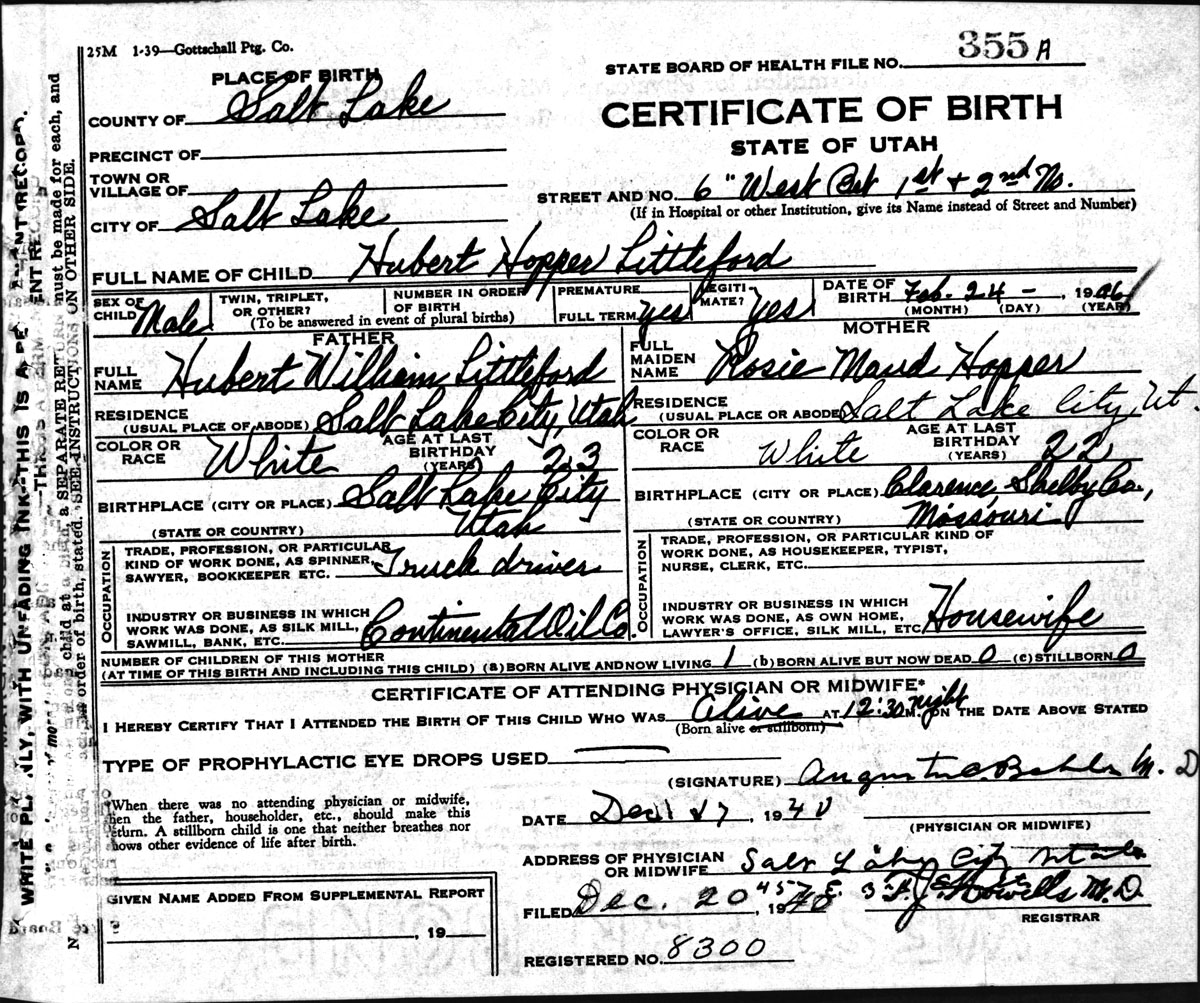 25M 1-39—Gottschall Ptg. Co.
355 A
STATE BOARD OF HEALTH FILE NO.
PLACE OF BIRTH
COUNTY OF Salt Lake
CERTIFICATE OF BIRTH
PRECINCT OF
STATE OF UTAH
TOWN OR
VILLAGE OF
STREET AND NO. 6" West Bet 1st + 2nd No.
(If in Hospital or other Institution, give its Name instead of Street and Number)
CITY OF Salt Lake
FULL NAME OF CHILD Hubert Hopper Littleford
SEX OF
CHILD Male
TWIN, TRIPLET,
OR OTHER?
NUMBER IN ORDER
OF BIRTH
(To be answered in event of plural births)
PREMATURE
FULL TERM yes
LEGITI
MATE? yes
DATE OF
BIRTH Feb. 24 - , 1906
(MONTH) (DAY) (YEAR)
FATHER
FULL
NAME Hubert William Littleford
RESIDENCE
(USUAL PLACE OF ABODE) Salt Lake City, Utah
COLOR OR
RACE White
AGE AT LAST
BIRTHDAY
(YEARS) 23
BIRTHPLACE (CITY OR PLACE) Salt Lake City
(STATE OR COUNTRY) Utah
OCCUPATION
TRADE, PROFESSION, OR PARTICULAR
KIND OF WORK DONE, AS SPINNER,
SAWYER, BOOKKEEPER ETC. Truck driver
INDUSTRY OR BUSINESS IN WHICH
WORK WAS DONE, AS SILK MILL,
SAWMILL, BANK, ETC. Continental Oil Co.
MOTHER
FULL
MAIDEN
NAME Rosie Maud Hopper
RESIDENCE
(USUAL PLACE OR ABODE) Salt Lake City, Ut.
COLOR OR
RACE White
AGE AT LAST
BIRTHDAY
(YEARS) 22
BIRTHPLACE (CITY OR PLACE) Clarence, Shelby Co.,
(STATE OR COUNTRY) Missouri
OCCUPATION
TRADE, PROFESSION, OR PARTICULAR KIND OF
WORK DONE, AS HOUSEKEEPER, TYPIST,
NURSE, CLERK, ETC.
INDUSTRY OR BUSINESS IN WHICH
WORK WAS DONE, AS OWN HOME,
LAWYER'S OFFICE, SILK MILL, ETC. Housewife
NUMBER OF CHILDREN OF THIS MOTHER
(AT TIME OF THIS BIRTH AND INCLUDING THIS CHILD) (a) BORN ALIVE AND NOW LIVING 1 (b) BORN ALIVE BUT NOW DEAD 0 (c) STILLBORN 0
CERTIFICATE OF ATTENDING PHYSICIAN OR MIDWIFE*
I HEREBY CERTIFY THAT I ATTENDED THE BIRTH OF THIS CHILD WHO WAS Alive AT 12:30 night M. ON THE DATE ABOVE STATED
(Born alive or stillborn)
TYPE OF PROPHYLACTIC EYE DROPS USED
(SIGNATURE) M. D
DATE 17, 1940
(PHYSICIAN OR MIDWIFE)
*When there was no attending physician or midwife,
hen the father, householder, etc., should make this
eturn. A stillborn child is one that neither breathes nor
hows other evidence of life after birth.
ADDRESS OF PHYSICIAN
OR MIDWIFE Salt Lake City Utah
GIVEN NAME ADDED FROM SUPPLEMENTAL REPORT
, 19
FILED Dec. 20, 1940 Howells M.D.
REGISTRAR
REGISTERED NO. 8300
WRITE PLAINLY, WITH UNFADING INK—THIS IS A PERMANENT RECORD.
a SEPARATE RETURN must be made for each, and
order of birth, stated. SEE INSTRUCTIONS ON OTHER SIDE.